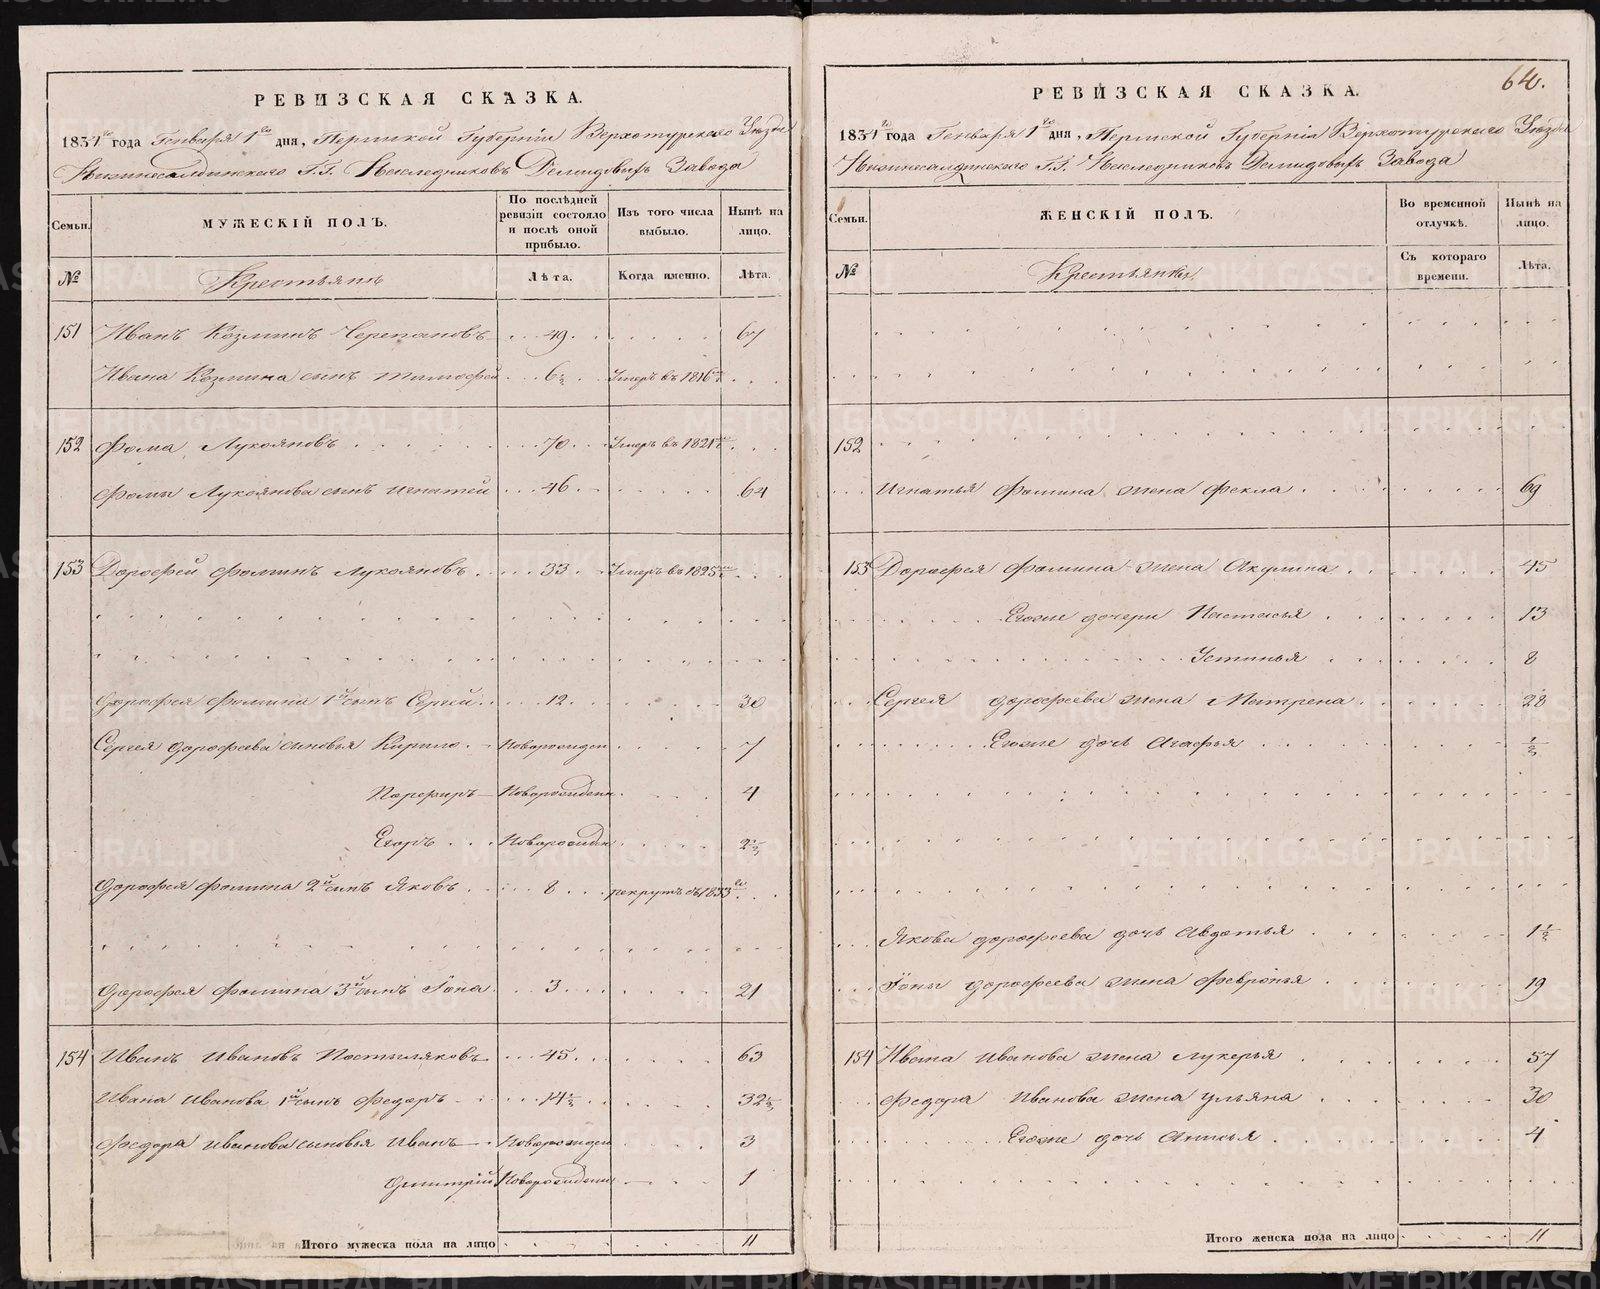 РЕВИЗСКАЯ СКАЗКА.
1834го года Генваря 1го дня, Пермской Губерніи Верхотурскаго Уѣзда
Нижнесалдинскаго Г.Г. Наследниковъ Демидовыхъ Завода
Семьи. МУЖЕСКІЙ ПОЛЪ. По послѣдней ревизіи состояло и послѣ оной прибыло. Изъ того числа выбыло. Нынѣ на лицо.
№ Крестьянъ Лѣта. Когда именно. Лѣта.
151 Иванъ Козминъ Черепановъ 49 67
Ивана Козмина сынъ Тимофей 6½ Умеръ въ 1816мъ
152 Фома Лукояновъ 70 Умеръ въ 1821мъ
Фомы Лукоянова сынъ Игнатей 46 64
153 Дорофей Фоминъ Лукояновъ 33 Умеръ въ 1825мъ
Дорофея Фомина 1й сынъ Сергей 12 30
Сергея Дорофеева сыновья Кирило Новорожден 7
Перфиръ Новорожден 4
Егоръ Новорожден 2½
Дорофея Фомина 2й сынъ Яковъ 8 рекрутъ въ 1833го
Дорофея Фомина 3й сынъ Іона 3 21
154 Иванъ Ивановъ Постыляковъ 45 63
Ивана Иванова 1й сынъ Федоръ 14½ 32½
Федора Иванова сыновья Иванъ Новорожден 3
Дмитрій Новорожден 1
Итого мужеска пола на лицо 11
64.
РЕВИЗСКАЯ СКАЗКА.
1834го года Генваря 1го дня, Пермской Губерніи Верхотурскаго Уѣзда
Нижнесалдинскаго Г.Г. Наследниковъ Демидовыхъ Завода
Семьи. ЖЕНСКІЙ ПОЛЪ. Во временной отлучкѣ. Нынѣ на лицо.
№ Крестьянки Съ котораго времени. Лѣта.
152
Игнатья Фомина жена Фекла 69
153 Дорофея Фомина жена Акулина 45
Егоже дочери Настасья 13
Устинья 8
Сергея Дорофеева жена Матрена 28
Егоже дочь Агафья ½
Якова Дорофеева дочь Авдотья 1½
Іоны Дорофеева жена Февронья 19
154 Ивана Иванова жена Лукерья 57
Федора Иванова жена Ульяна 30
Егоже дочь Анисья 4
Итого женска пола на лицо 11
METRIKI.GASO-URAL.RU